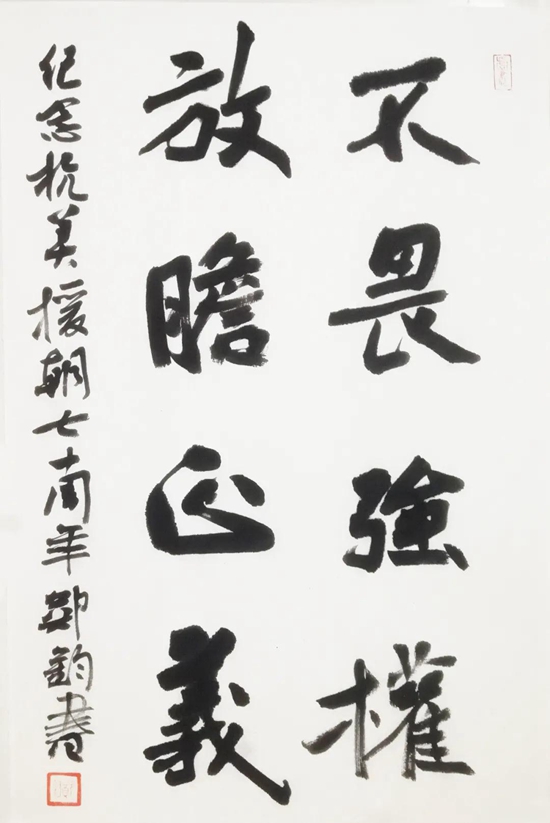 不畏強權
放膽正義
纪念抗美援朝七十周年鈞書